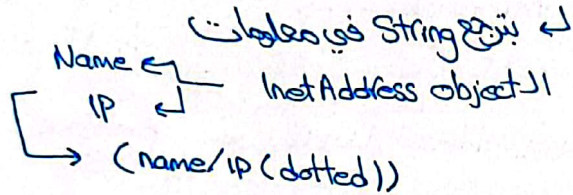 ↲ بترجع String في معلومات
الـ InetAddress object
Name
IP
→ (name/IP (dotted))